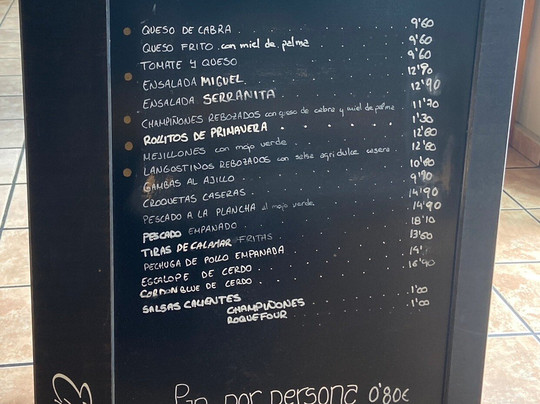 QUESO DE CABRA 9'60
QUESO FRITO con miel de palma 9'60
TOMATE Y QUESO 9'60
ENSALADA MIGUEL 12'90
ENSALADA SERRANITA 12'90
CHAMPIÑONES REBOZADOS con queso de cabra y miel de palma 11'70
ROLLITOS DE PRIMAVERA 1'30
MEJILLONES con mojo verde 12'80
LANGOSTINOS REBOZADOS con salsa agridulce casera 12'80
GAMBAS AL AJILLO 10'80
CROQUETAS CASERAS 9'90
PESCADO A LA PLANCHA al mojo verde 14'90
PESCADO EMPANADO 14'90
TIRAS DE CALAMAR FRITAS 18'10
PECHUGA DE POLLO EMPANADA 13'60
ESCALOPE DE CERDO 14'
CORDON BLUE DE CERDO 16'90
SALSAS CALIENTES
CHAMPIÑONES 1'00
ROQUEFOUR 1'00
Pan por persona 0'80€